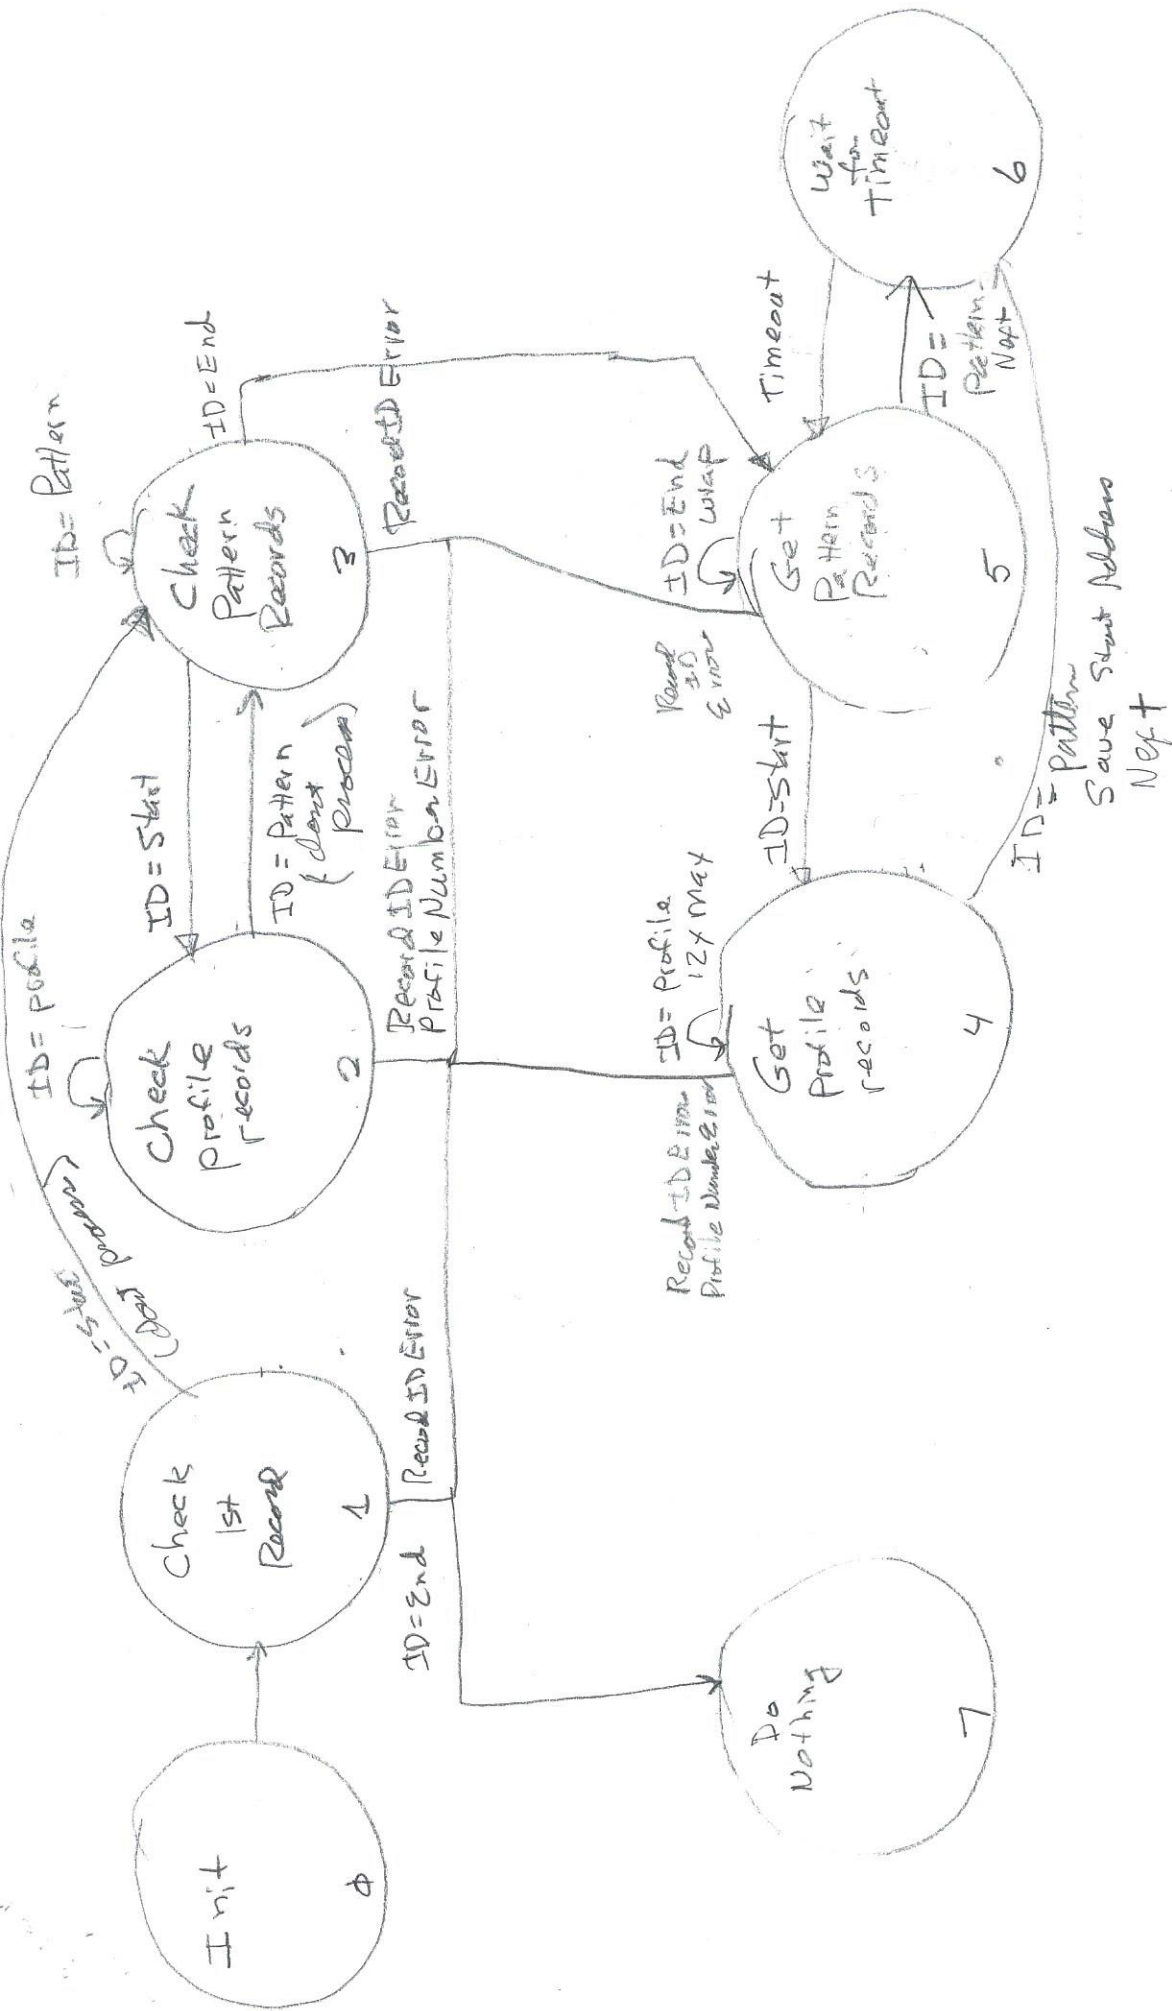 Init
0
Check
1st
Record
1
ID=End
Record ID Error
ID=Start
ID=profile
Check
profile
records
2
ID=Start
ID=Pattern
{ dont
process }
Record ID Error
Profile Number Error
ID=Pattern
Check
Pattern
Records
3
ID=End
Record ID Error
Do
Nothing
7
Record ID Error
Profile Number Error
ID=Profile
12x max
Get
Profile
records
4
ID=Start
Record
ID
Error
ID=End
Wrap
Get
Pattern
Records
5
Timeout
ID=
Pattern
Next
Wait
for
Timeout
6
ID=
Pattern
Save Start Address
Next